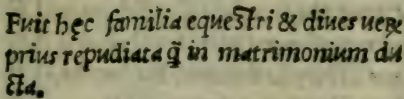 Fuit hęc familia equestri & diues ueꝝ
prius repudiata q̃ in matrimonium du
cta.